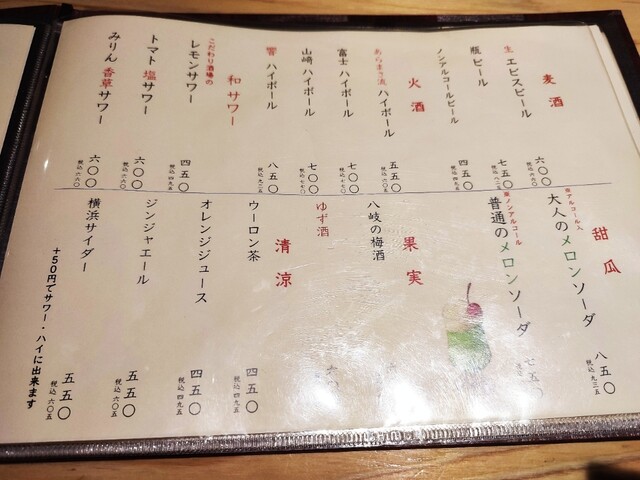 麦酒
生 ヱビスビール
六〇〇
税込六六〇
瓶ビール
七五〇
税込八二五
ノンアルコールビール
四五〇
税込四九五
火酒
あらまさ流ハイボール
五五〇
富士ハイボール
七〇〇
山崎ハイボール
七〇〇
税込七七〇
響ハイボール
八五〇
税込九三五
和サワー
こだわり酒場の
レモンサワー
四五〇
税込四九五
トマト塩サワー
六〇〇
税込六六〇
みりん香草サワー
六〇〇
税込六六〇
甜瓜
※アルコール入
大人のメロンソーダ
八五〇
税込九三五
※ノンアルコール
普通のメロンソーダ
七五〇
果実
八岐の梅酒
ゆず酒
清涼
ウーロン茶
四五〇
税込四九五
オレンジジュース
四五〇
税込四九五
ジンジャエール
五五〇
税込六〇五
横浜サイダー
五五〇
税込六〇五
+50円でサワー・ハイに出来ます